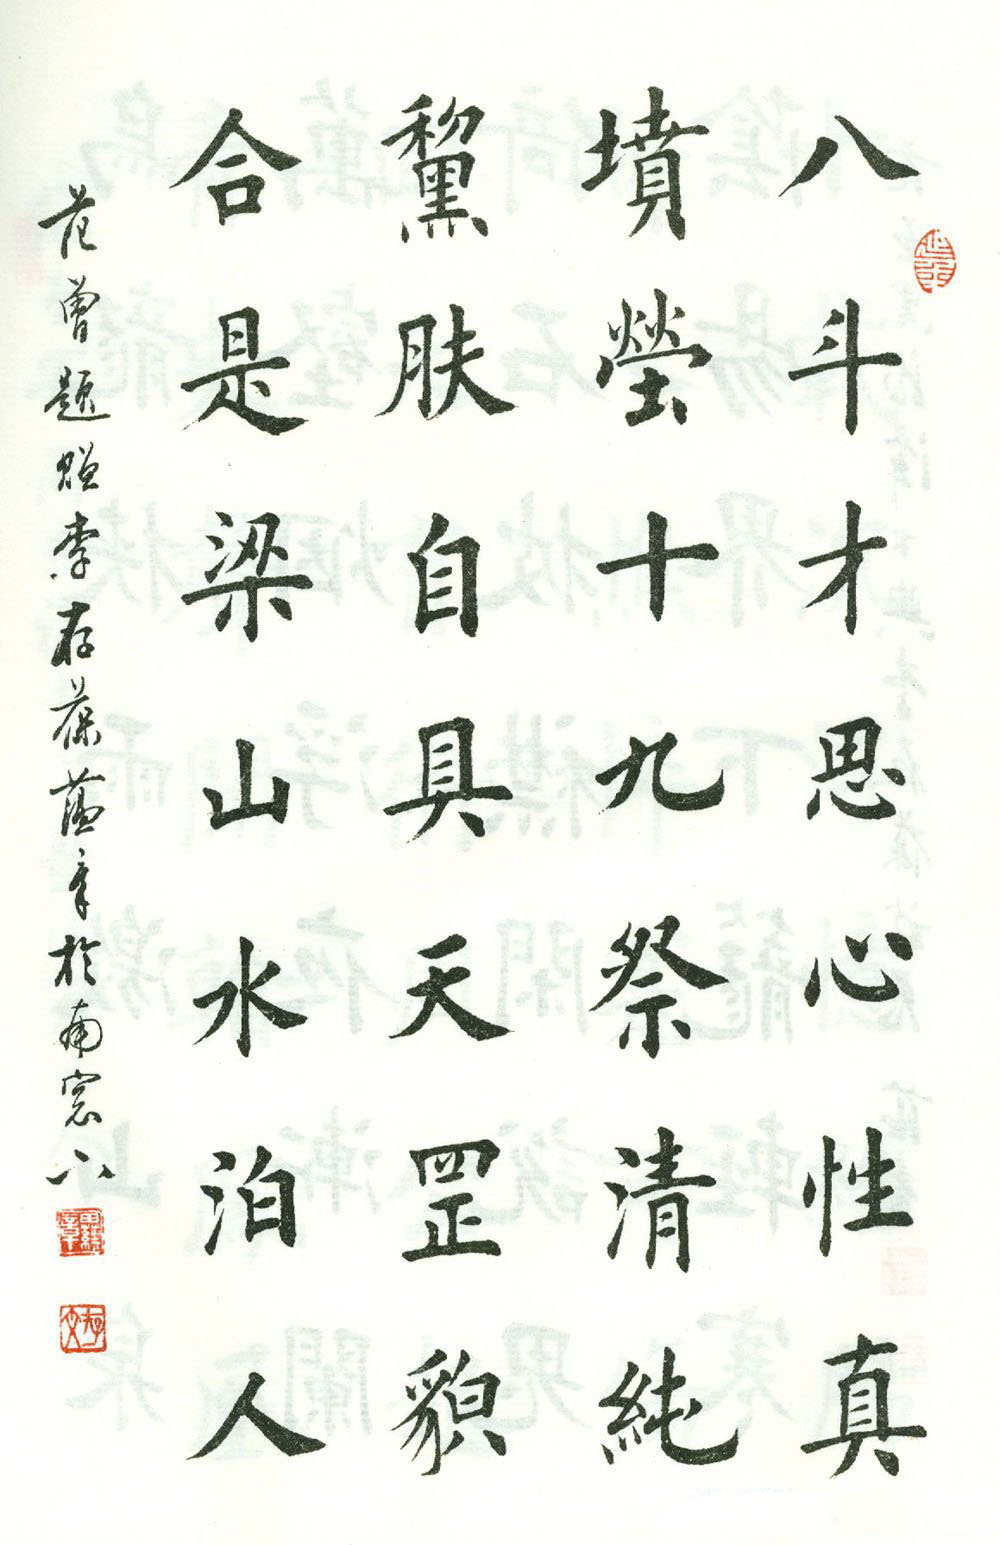 八斗才思心性真
墳塋十九祭清純
黧肤自具天罡貌
合是梁山水泊人
范曾題贈李存葆蘊章於南窗下